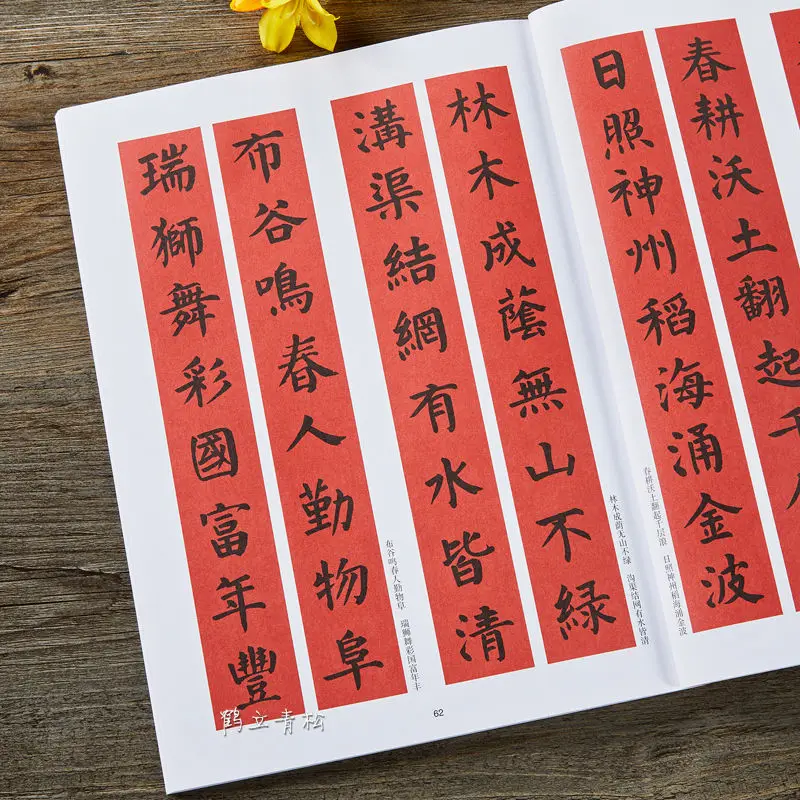 春耕沃土翻起千
日照神州稻海涌金波
春耕沃土翻起千层浪 日照神州稻海涌金波
林木成蔭無山不綠
溝渠結網有水皆清
林木成荫无山不绿 沟渠结网有水皆清
布谷鳴春人勤物阜
瑞獅舞彩國富年豐
布谷鸣春人勤物阜 瑞狮舞彩国富年丰
62
鹤立青松